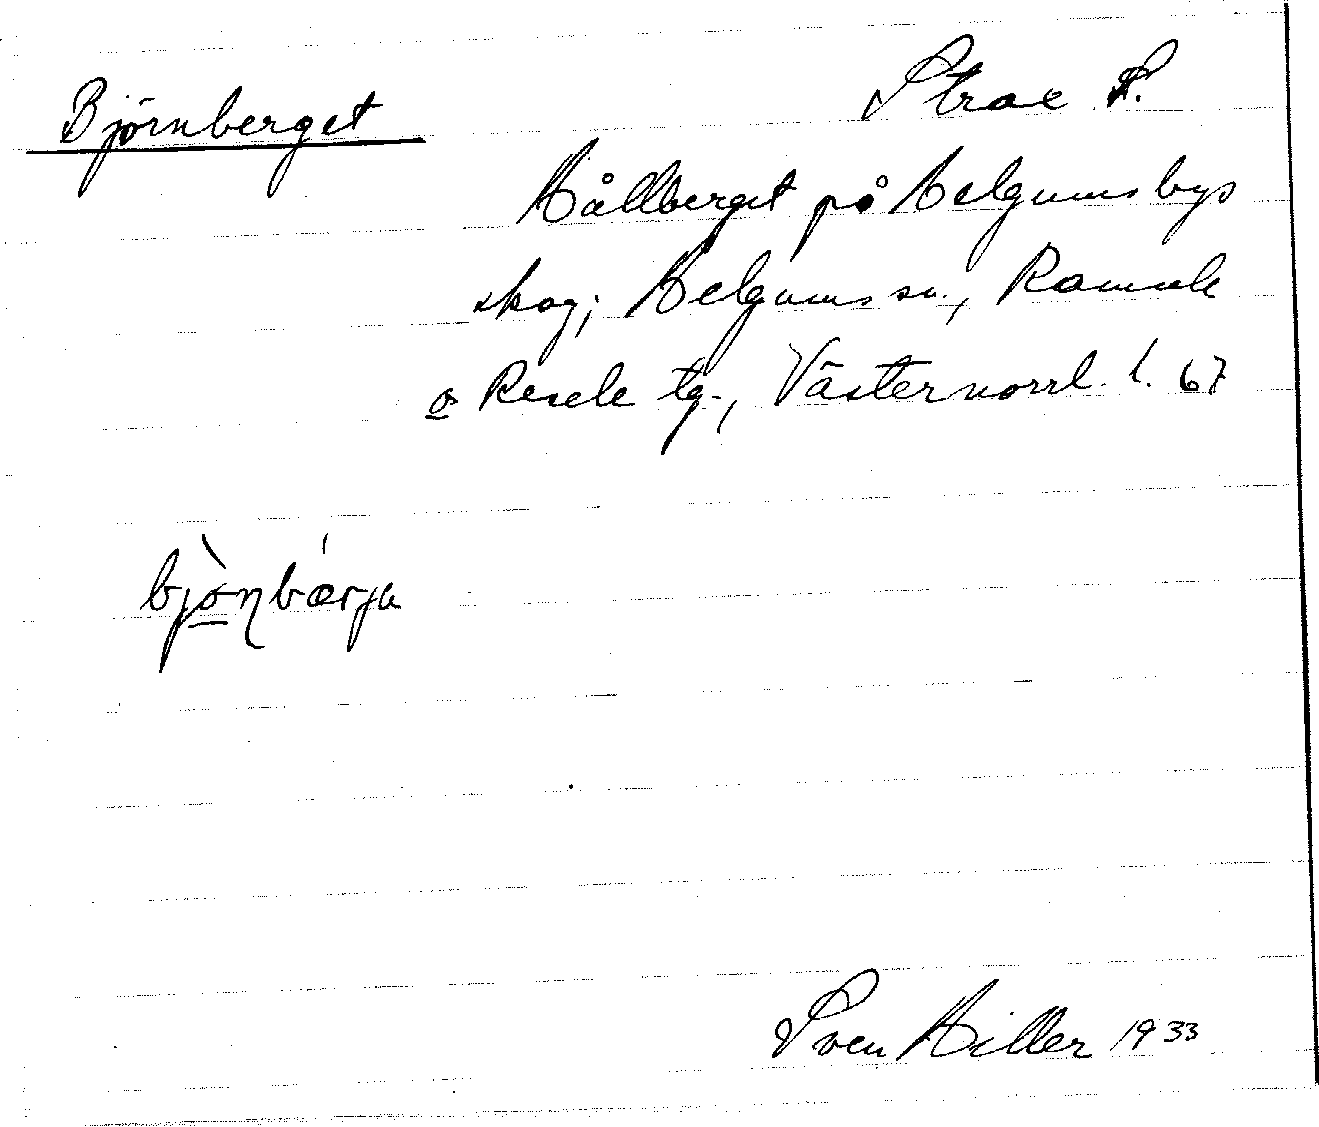 Björnberget
Strax S.
Hållberget på Helgums bys
skog; Helgums sn., Ramsele
o Resele tg., Västernorrl. l. 67
bjò̱ŋbærja
Sven Hiller 1933